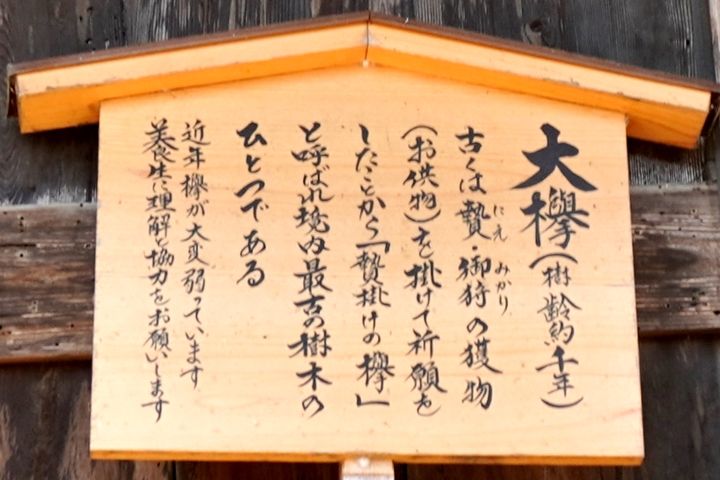 大欅(樹齢約千年)
にえ みかり
古くは贄・御狩の獲物
(お供物)を掛けて祈願を
したことから「贄掛けの欅」
と呼ばれ境内最古の樹木の
ひとつである
近年欅が大変弱っています
養生に理解と協力をお願いします